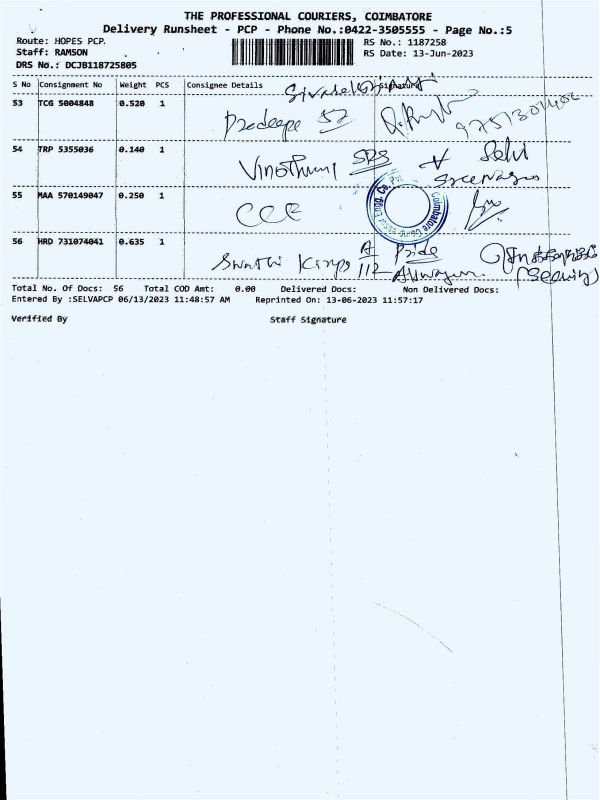 THE PROFESSIONAL COURIERS, COIMBATORE
Delivery Runsheet - PCP - Phone No.:0422-3505555 - Page No.:5
Route: HOPES PCP. RS No.: 1187258
Staff: RAMSON RS Date: 13-Jun-2023
DRS No.: DCJB118725805
S No Consignment No Weight PCS Consignee Details Signature
53 TCG 5004848 0.520 1 Pradeepa 52
54 TRP 5355036 0.140 1 SPS Selvi
55 MAA 570149047 0.250 1
Engg. Co. Coimbatore
56 HRD 731074041 0.635 1 Swathi A Pride
112
Total No. Of Docs: 56 Total COD Amt: 0.00 Delivered Docs: Non Delivered Docs:
Entered By :SELVAPCP 06/13/2023 11:48:57 AM Reprinted On: 13-06-2023 11:57:17
Verified By Staff Signature